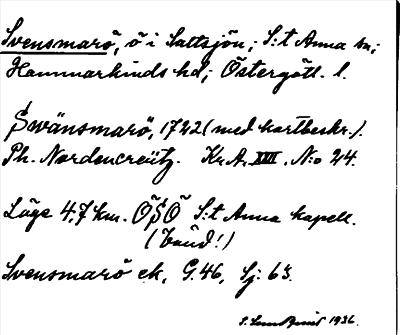 Svensmarö, ö i Saltsjön, S:t Anna sn;
Hammarkinds hd, Östergötl. l.
Swänsmarö, 1722 (med kartbeskr.).
Ph. Nordencreütz. Kr.A. XVII, N:o 24.
Läge 4,7 km. OSO S:t Anna kapell.
Svensmarö ek, G. 46, Sj: 63.
1936.